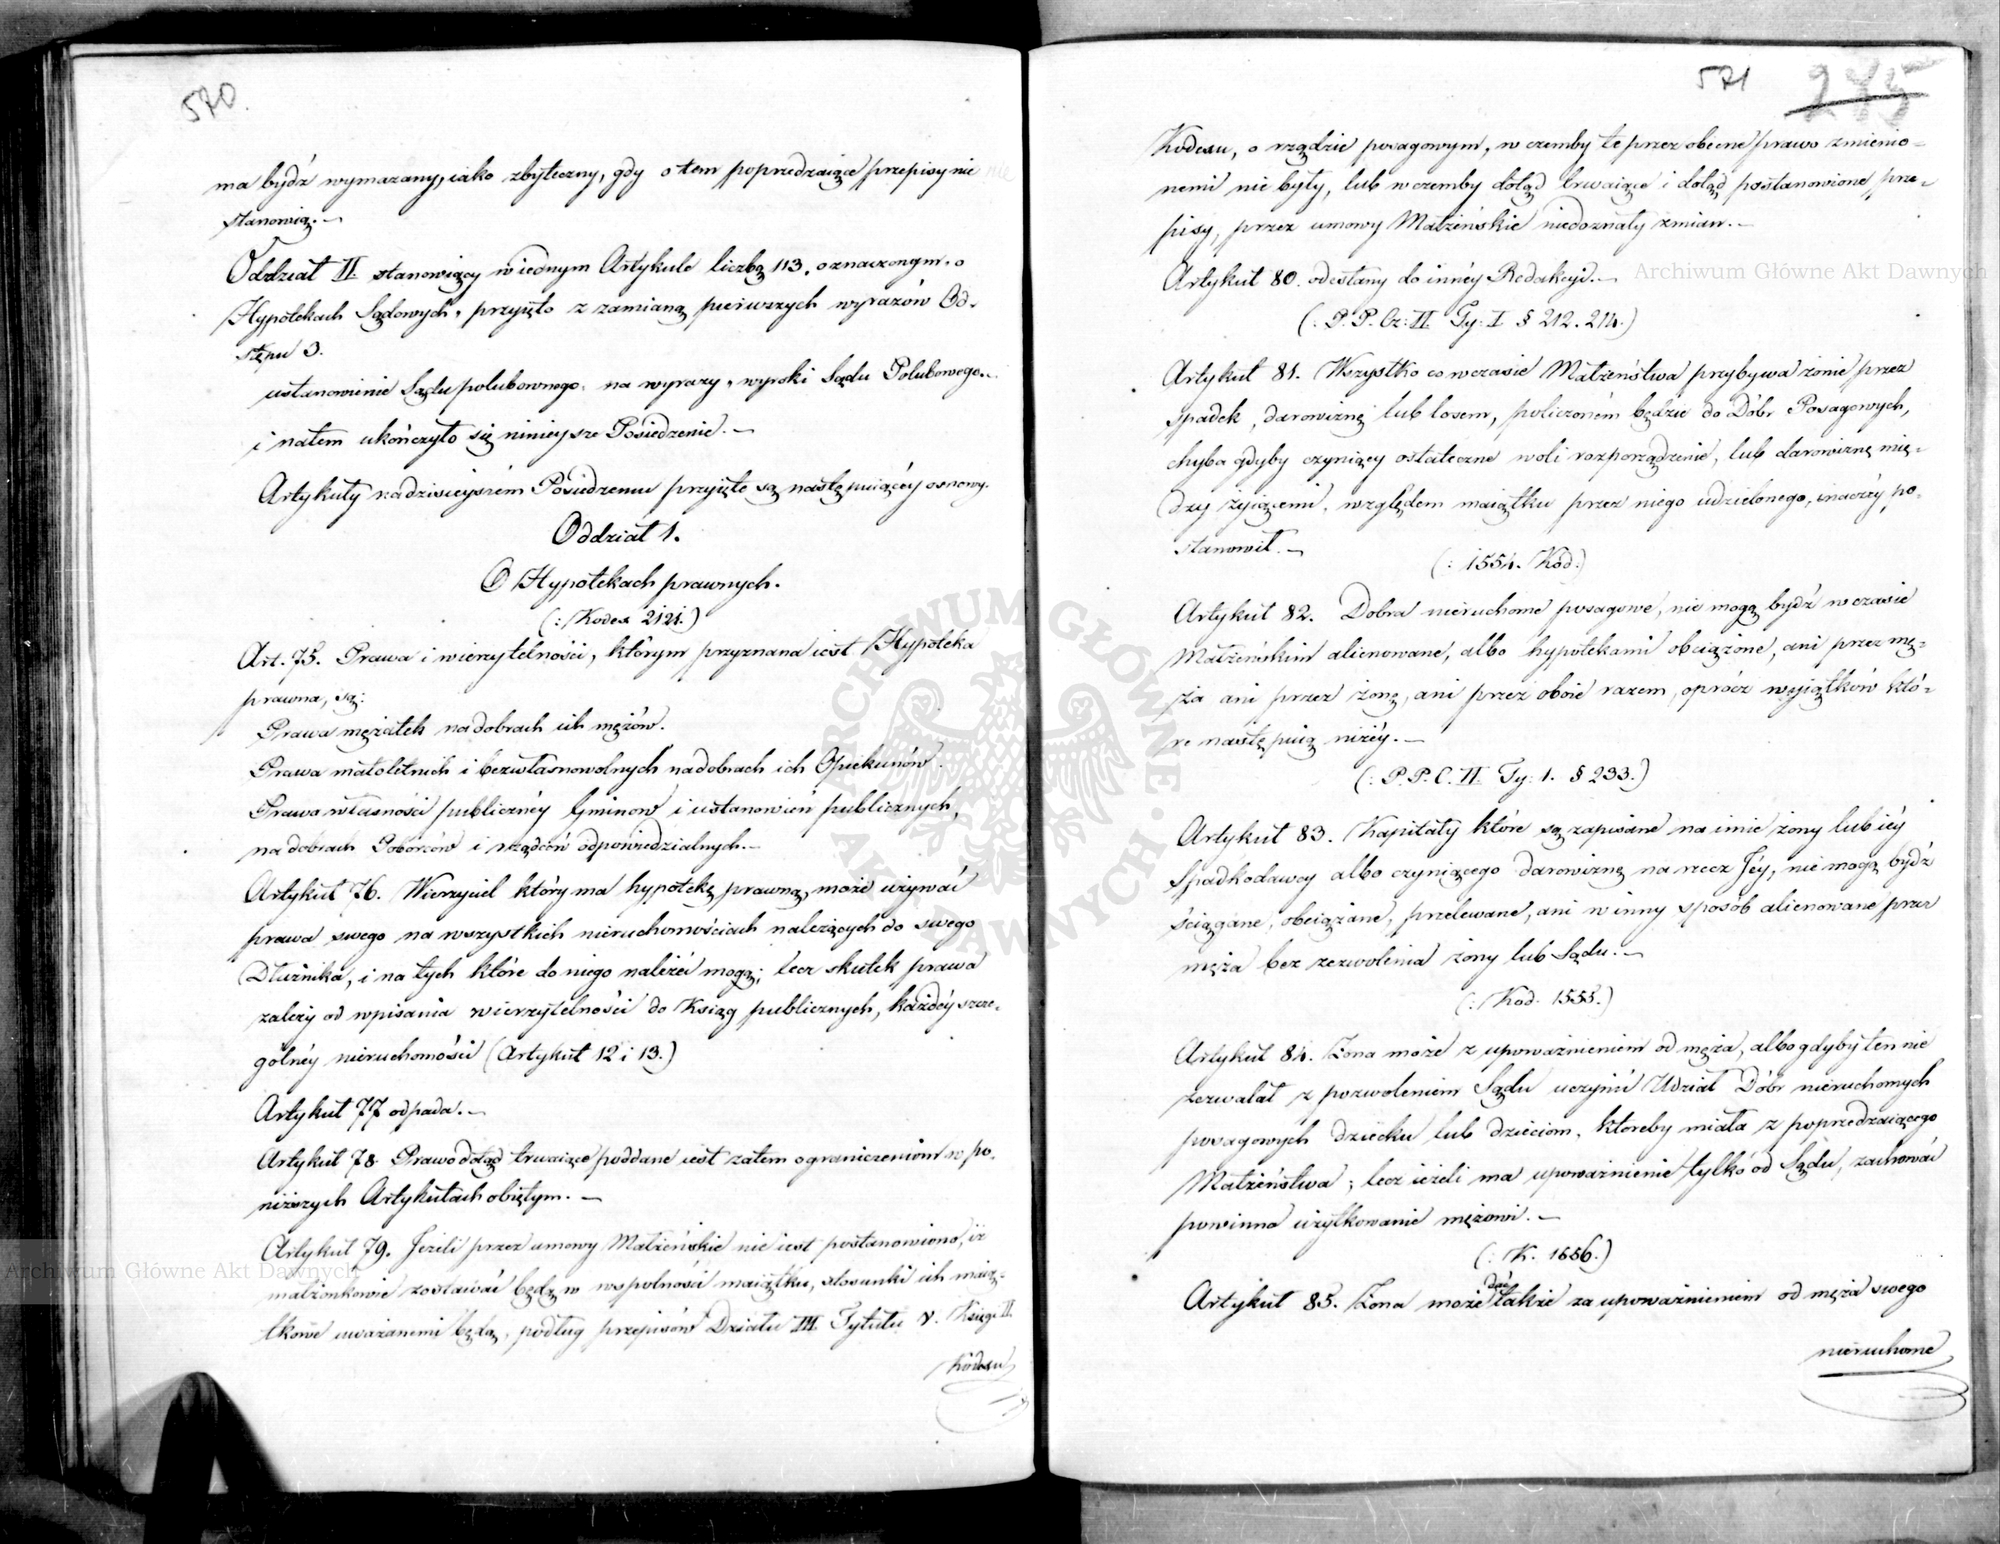 570.
ma bydź wymazany, iako zbyteczny, gdy o tem poprzedzaiące przepisy nie
stanowią.—
Oddział II stanowiący w iednym Artykule liczbą 113, oznaczonym, o
Hypotekach Sądowych, przyięto z zamianą pierwszych wyrazów Od-
stępu 3.
ustanowienie Sądu polubownego, na wyrazy, wyroki Sądu Polubowego.
i natem ukończyło się ninieysze Posiedzenie.—
Artykuły na dzisieyszém Posiedzeniu przyięte są następuiącéy osnowy.
Oddział 1.
O Hypotekach prawnych.
(: Kodex 2121.)
Art. 75. Prawa i wierzytelności, którym przyznana iest Hypoteka
prawna, są:
Prawa mężatek na dobrach ich mężów.
Prawa małoletnich i bezwłasnowolnych na dobrach ich Opiekunów.
Prawa własności publicznéy Gminow i ustanowień publicznych,
na dobrach Poborców i rządców odpowiedzialnych.—
Artykuł 76. Wierzyciel który ma hypotekę prawną, może używać
prawa swego na wszystkich nieruchomościach należących do swego
Dłużnika, i na tych które do niego należeć mogą; lecz skutek prawa
zależy od wpisania wierzytelności do Ksiąg publicznych, każdéy szcze-
gólnéy nieruchomości (Artykuł 12 i 13.)
Artykuł 77 odpada.—
Artykuł 78. Prawo dotąd trwaiące poddane iest zatem ograniczeniom w po-
niższych Artykułach obiętym.—
Artykuł 79. Jeżeli przez umowy Małżeńskie nie iest postanowiono, iż
małżonkowie zostawać będą w wspolności maiątku, stosunki ich maią-
tkowe uważanemi będą, podług przepisów Działu III Tytułu V. Księgi II.
Kodexu
571
245
Kodexu, o rządzie posagowym, w czemby te przez obecne prawo zmienio-
nemi nie były, lub w czemby dotąd trwaiące i dotąd postanowione prze-
pisy, przez umowy Małżeńskie niedoznały zmian.—
Artykuł 80. odesłany do innéy Redakcyi.—
(: P. P. Cz: II Ty: I § 212. 214.)
Artykuł 81. Wszystko co w czasie Małżeństwa przybywa żonie przez
spadek, darowiznę lub losem, policzoném będzie do Dóbr Posagowych,
chyba gdyby czyniący ostateczne woli rozporządzenie, lub darowiznę mię-
dzy żyiącemi, względem maiątku przez niego udzielonego, inaczéy po-
stanowił.—
(: 1554. Kod.)
Artykuł 82. Dobra nieruchome posagowe, nie mogą bydź w czasie
Małżeńskim alienowane, albo hypotekami obciążone, ani przez mę-
ża ani przez żonę, ani przez oboie razem, oprócz wyiątków któ-
re następuią niżéy.—
(: P. P. C. II Ty: 1. § 233.)
Artykuł 83. Kapitały które są zapisane na imie żony lub iéy
Spadkodawcy albo czyniącego darowiznę na rzecz Jéy, nie mogą bydź
ściągane, obciążane, przelewane, ani w inny sposób alienowane przez
męża bez zezwolenia żony lub Sądu.—
(: Kod. 1555.)
Artykuł 84. Żona może z upoważnieniem od męża, albo gdyby ten nie
zezwalał z pozwoleniem Sądu uczynić Udział Dóbr nieruchomych
posagowych dziecku lub dzieciom, któreby miała z poprzedzaiącego
Małżeństwa; lecz ieżeli ma upoważnienie tylko od Sądu, zachować
powinna użytkowanie mężowi.—
(: K. 1556.)
Artykuł 85. Żona może dać także za upoważnieniem od męża swego
nieruchome
Archiwum Główne Akt Dawnych
Archiwum Główne Akt Dawnych
ARCHIWUM GŁÓWNE AKT DAWNYCH